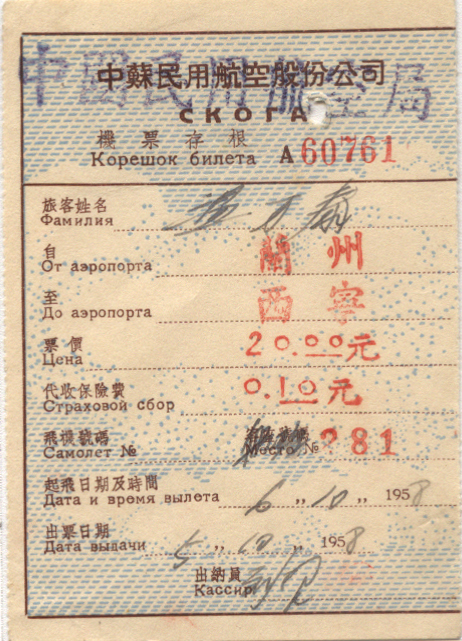 中國民用航空局
中蘇民用航空股份公司
СКОГА
機票存根
Корешок билета А 60761
旅客姓名
Фамилия
自
От аэропорта 蘭州
至
До аэропорта 西寧
票價
Цена 20.00元
代收保險費
Страховой сбор 0.10元
飛機號碼
Самолет № Место № 381
起飛日期及時間
Дата и время вылета 6 „ 10 „ 1958
出票日期
Дата выдачи 5 „ 10 „ 1958
出納員
Кассир